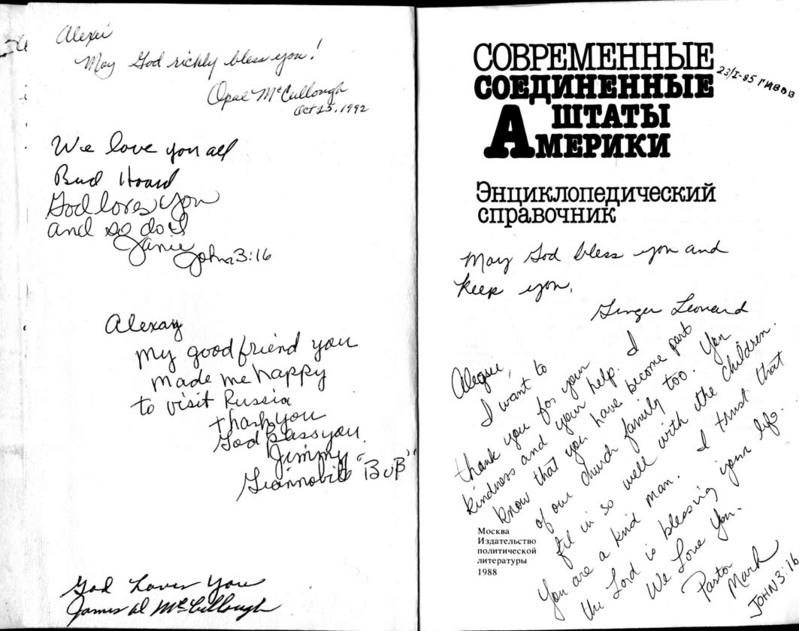 Alexei
May God richly bless you!
Opal McCullough
Oct 25, 1992
We love you all
Bud Hoard
God loves you
and so do I
Janie
John 3:16
Alexay
My good friend you
made me happy
to visit Russia
thank you
God bless you.
Jimmy
"BUB"
God Loves You
James Al McCullough
СОВРЕМЕННЫЕ
СОЕДИНЕННЫЕ
ШТАТЫ
АМЕРИКИ
23/I-95
Энциклопедический
справочник
May God bless you and
keep you.
Ginger Leonard
I want to
thank you for your
kindness and your help. I
know that you have become part
of our church family too. You
fit in so well with the children.
You are a kind man. I trust that
the Lord is blessing your life.
We Love You.
Pastor
Mark
JOHN 3:16
Москва
Издательство
политической
литературы
1988